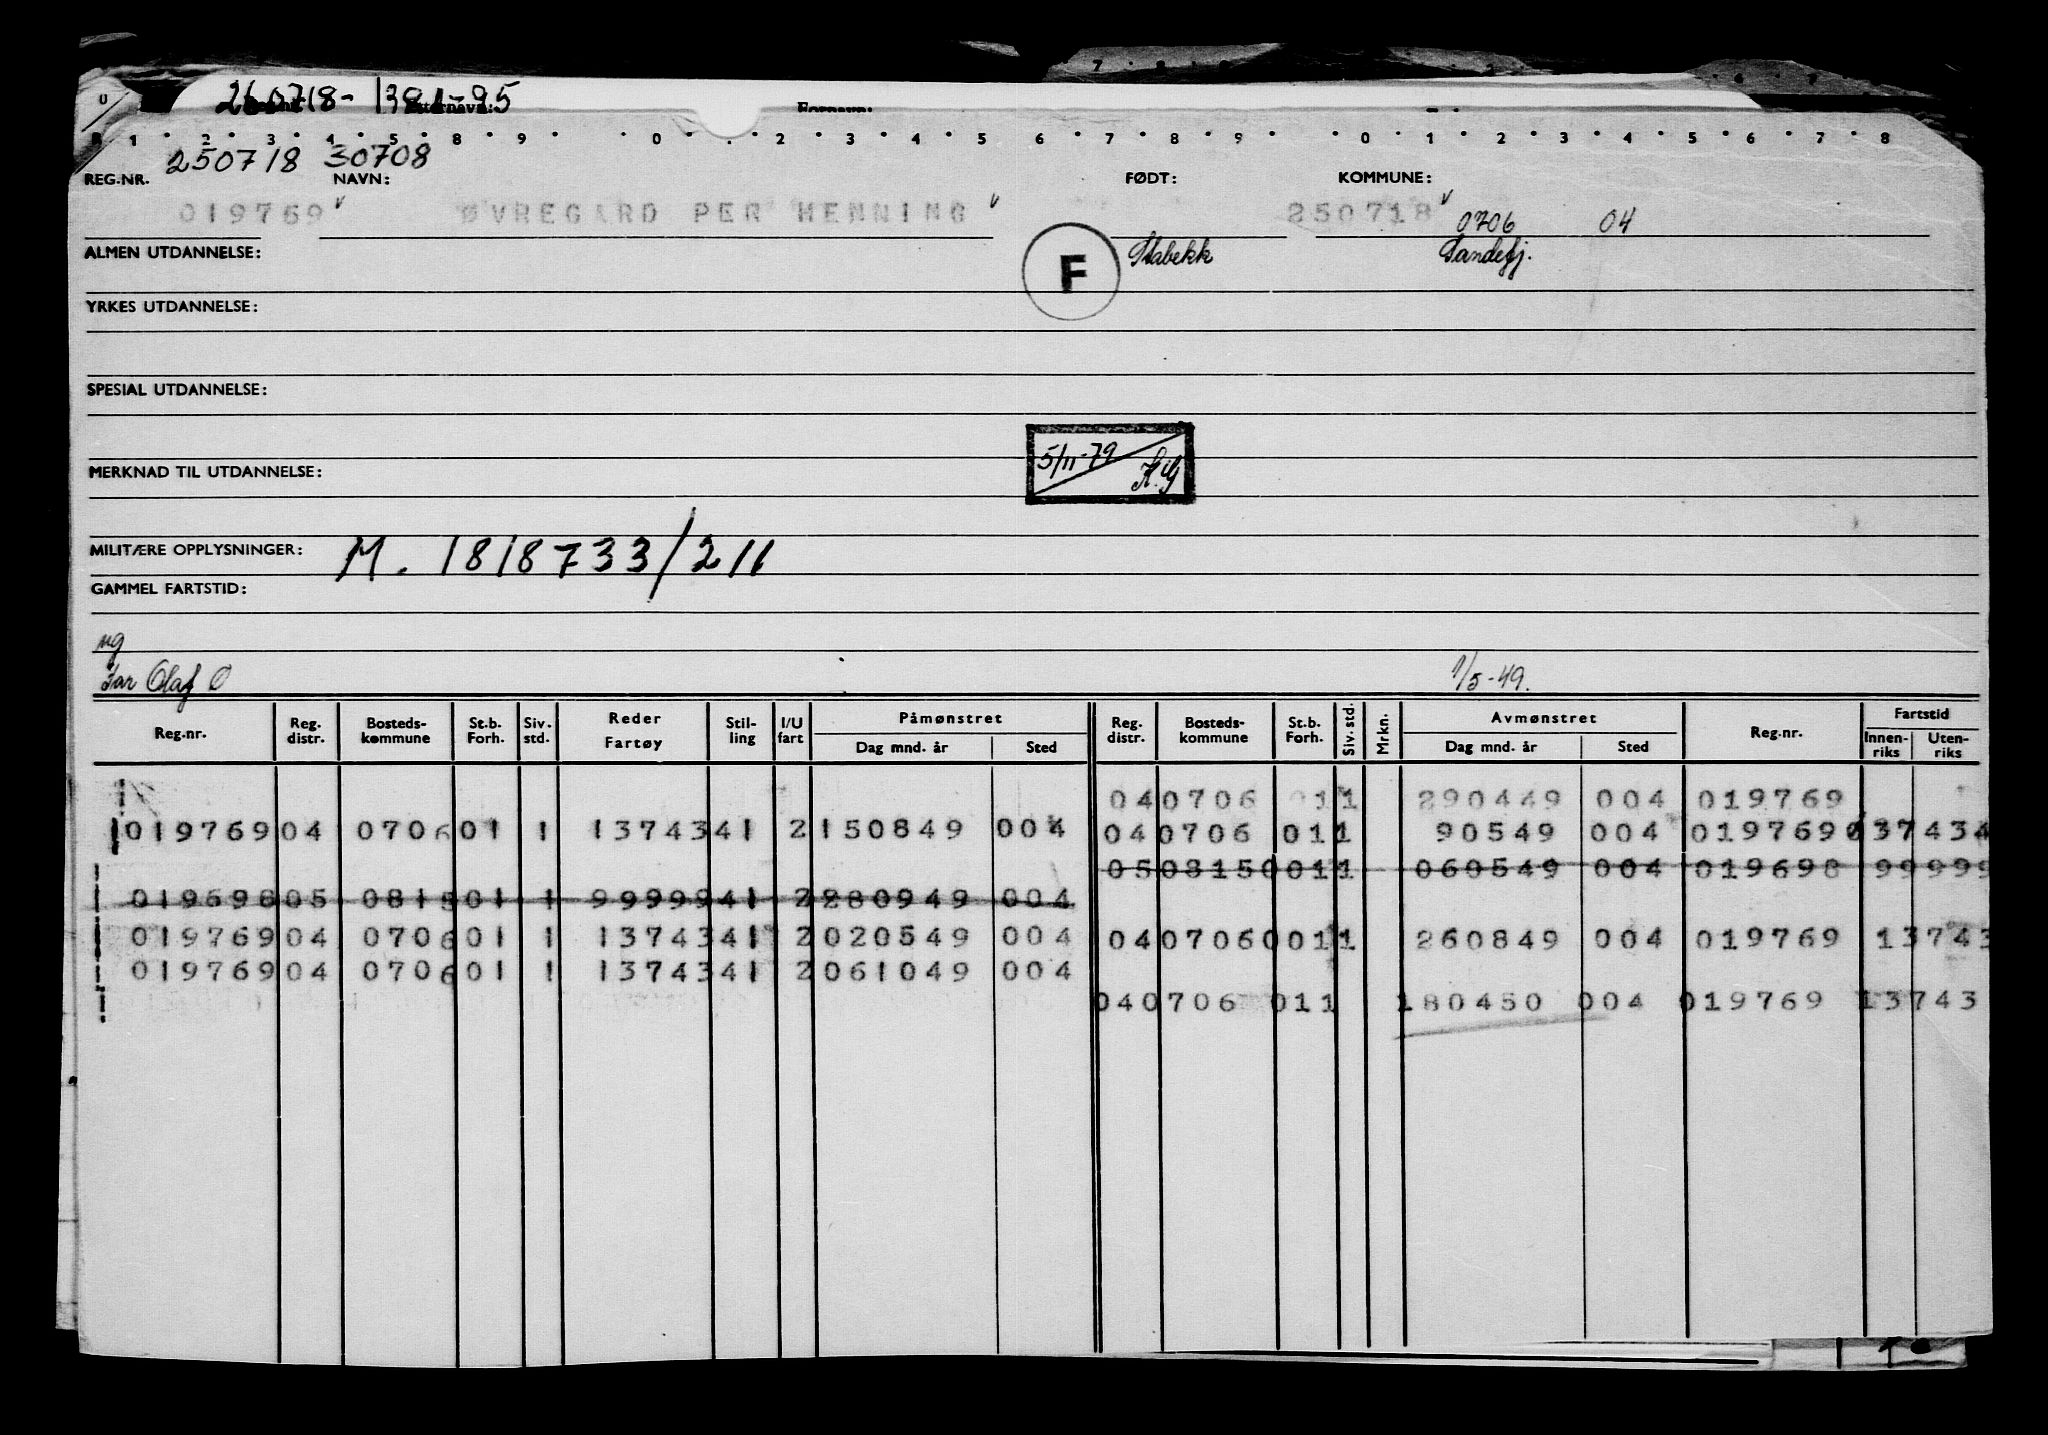 260718-
U
B 1 2 3 4 5 8 9 0 1 2 3 4 5 6 7 8 9 0 1 2 3 4 5 6 7 8
250718 30708
REG.NR. NAVN: FØDT: KOMMUNE:
019769 ØVREGARD PER HENNING 250718 0706 04
ALMEN UTDANNELSE: F Stabekk Sandefj.
YRKES UTDANNELSE:
SPESIAL UTDANNELSE:
5/11-79
MERKNAD TIL UTDANNELSE:
MILITÆRE OPPLYSNINGER: M. 1818733/211
GAMMEL FARTSTID:
ug
Far Olaf Ø 1/5-49.
Reg.nr. Reg. distr. Bosteds-kommune St.b. Forh. Siv. std. Reder Fartøy Stil-ling I/U fart Påmønstret Dag mnd. år Sted Reg. distr. Bosteds-kommune St.b. Forh. Siv. std. Mrkn. Avmønstret Dag mnd. år Sted Reg.nr. Fartstid Innen-riks Uten-riks
040706 011 290449 004 019769
019769 04 0706 01 1 13743 41 2 150849 004 040706 011 90549 004 019769 37434
0508150011 060549 004 019698 99999
019698 05 0815 01 1 99999 41 2 280949 004
019769 04 0706 01 1 13743 41 2 020549 004 0407060011 260849 004 019769 13743
019769 04 0706 01 1 13743 41 2 061049 004
040706 011 180450 004 019769 13743